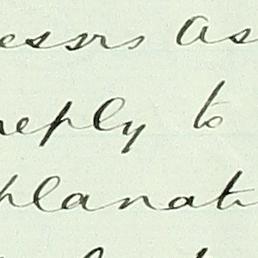 essrs As
reply to
planat